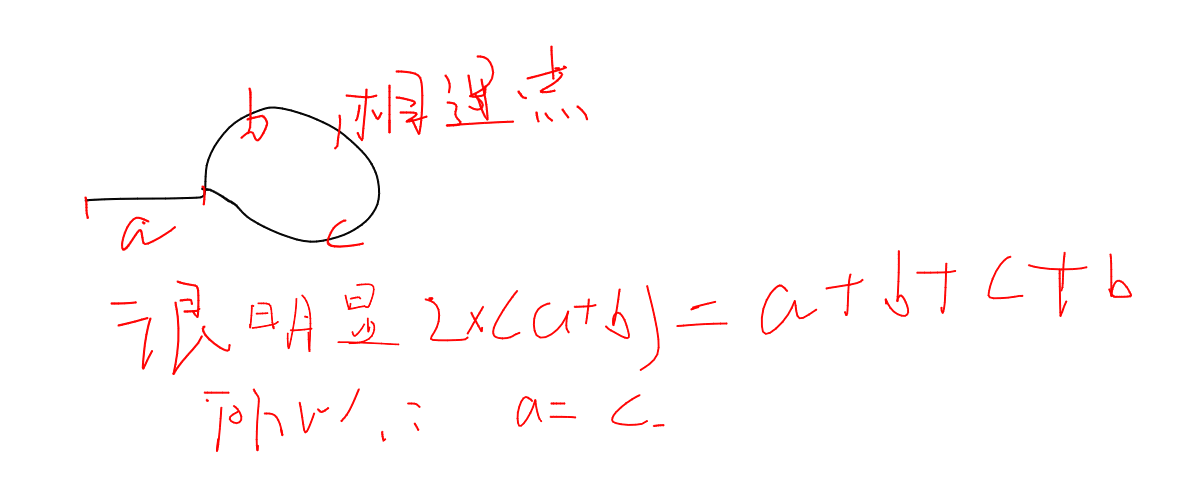 b 相遇点
a
c
很明显 2×(a+b)=a+b+c+b
所以: a=c.